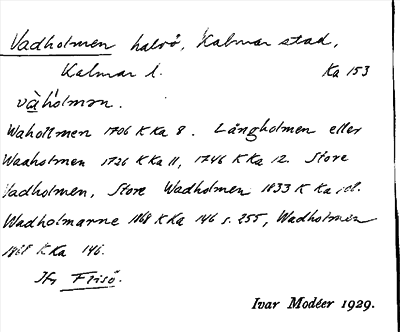 Vadholmen halvö, Kalmar stad,
Kalmar l. Ka 153
vàhòlmən.
Waholtmen 1706 K Ka 8. Långholmen eller
Waaholmen 1726 K Ka 11, 1746 K Ka 12. Store
Vadholmen, Store Wadholmen 1833 K Ka
Wadholmarne 1868 K Ka 146 s. 255, Wadholmen
1868 K Ka 146.
Jfr Frisö.
Ivar Modéer 1929.